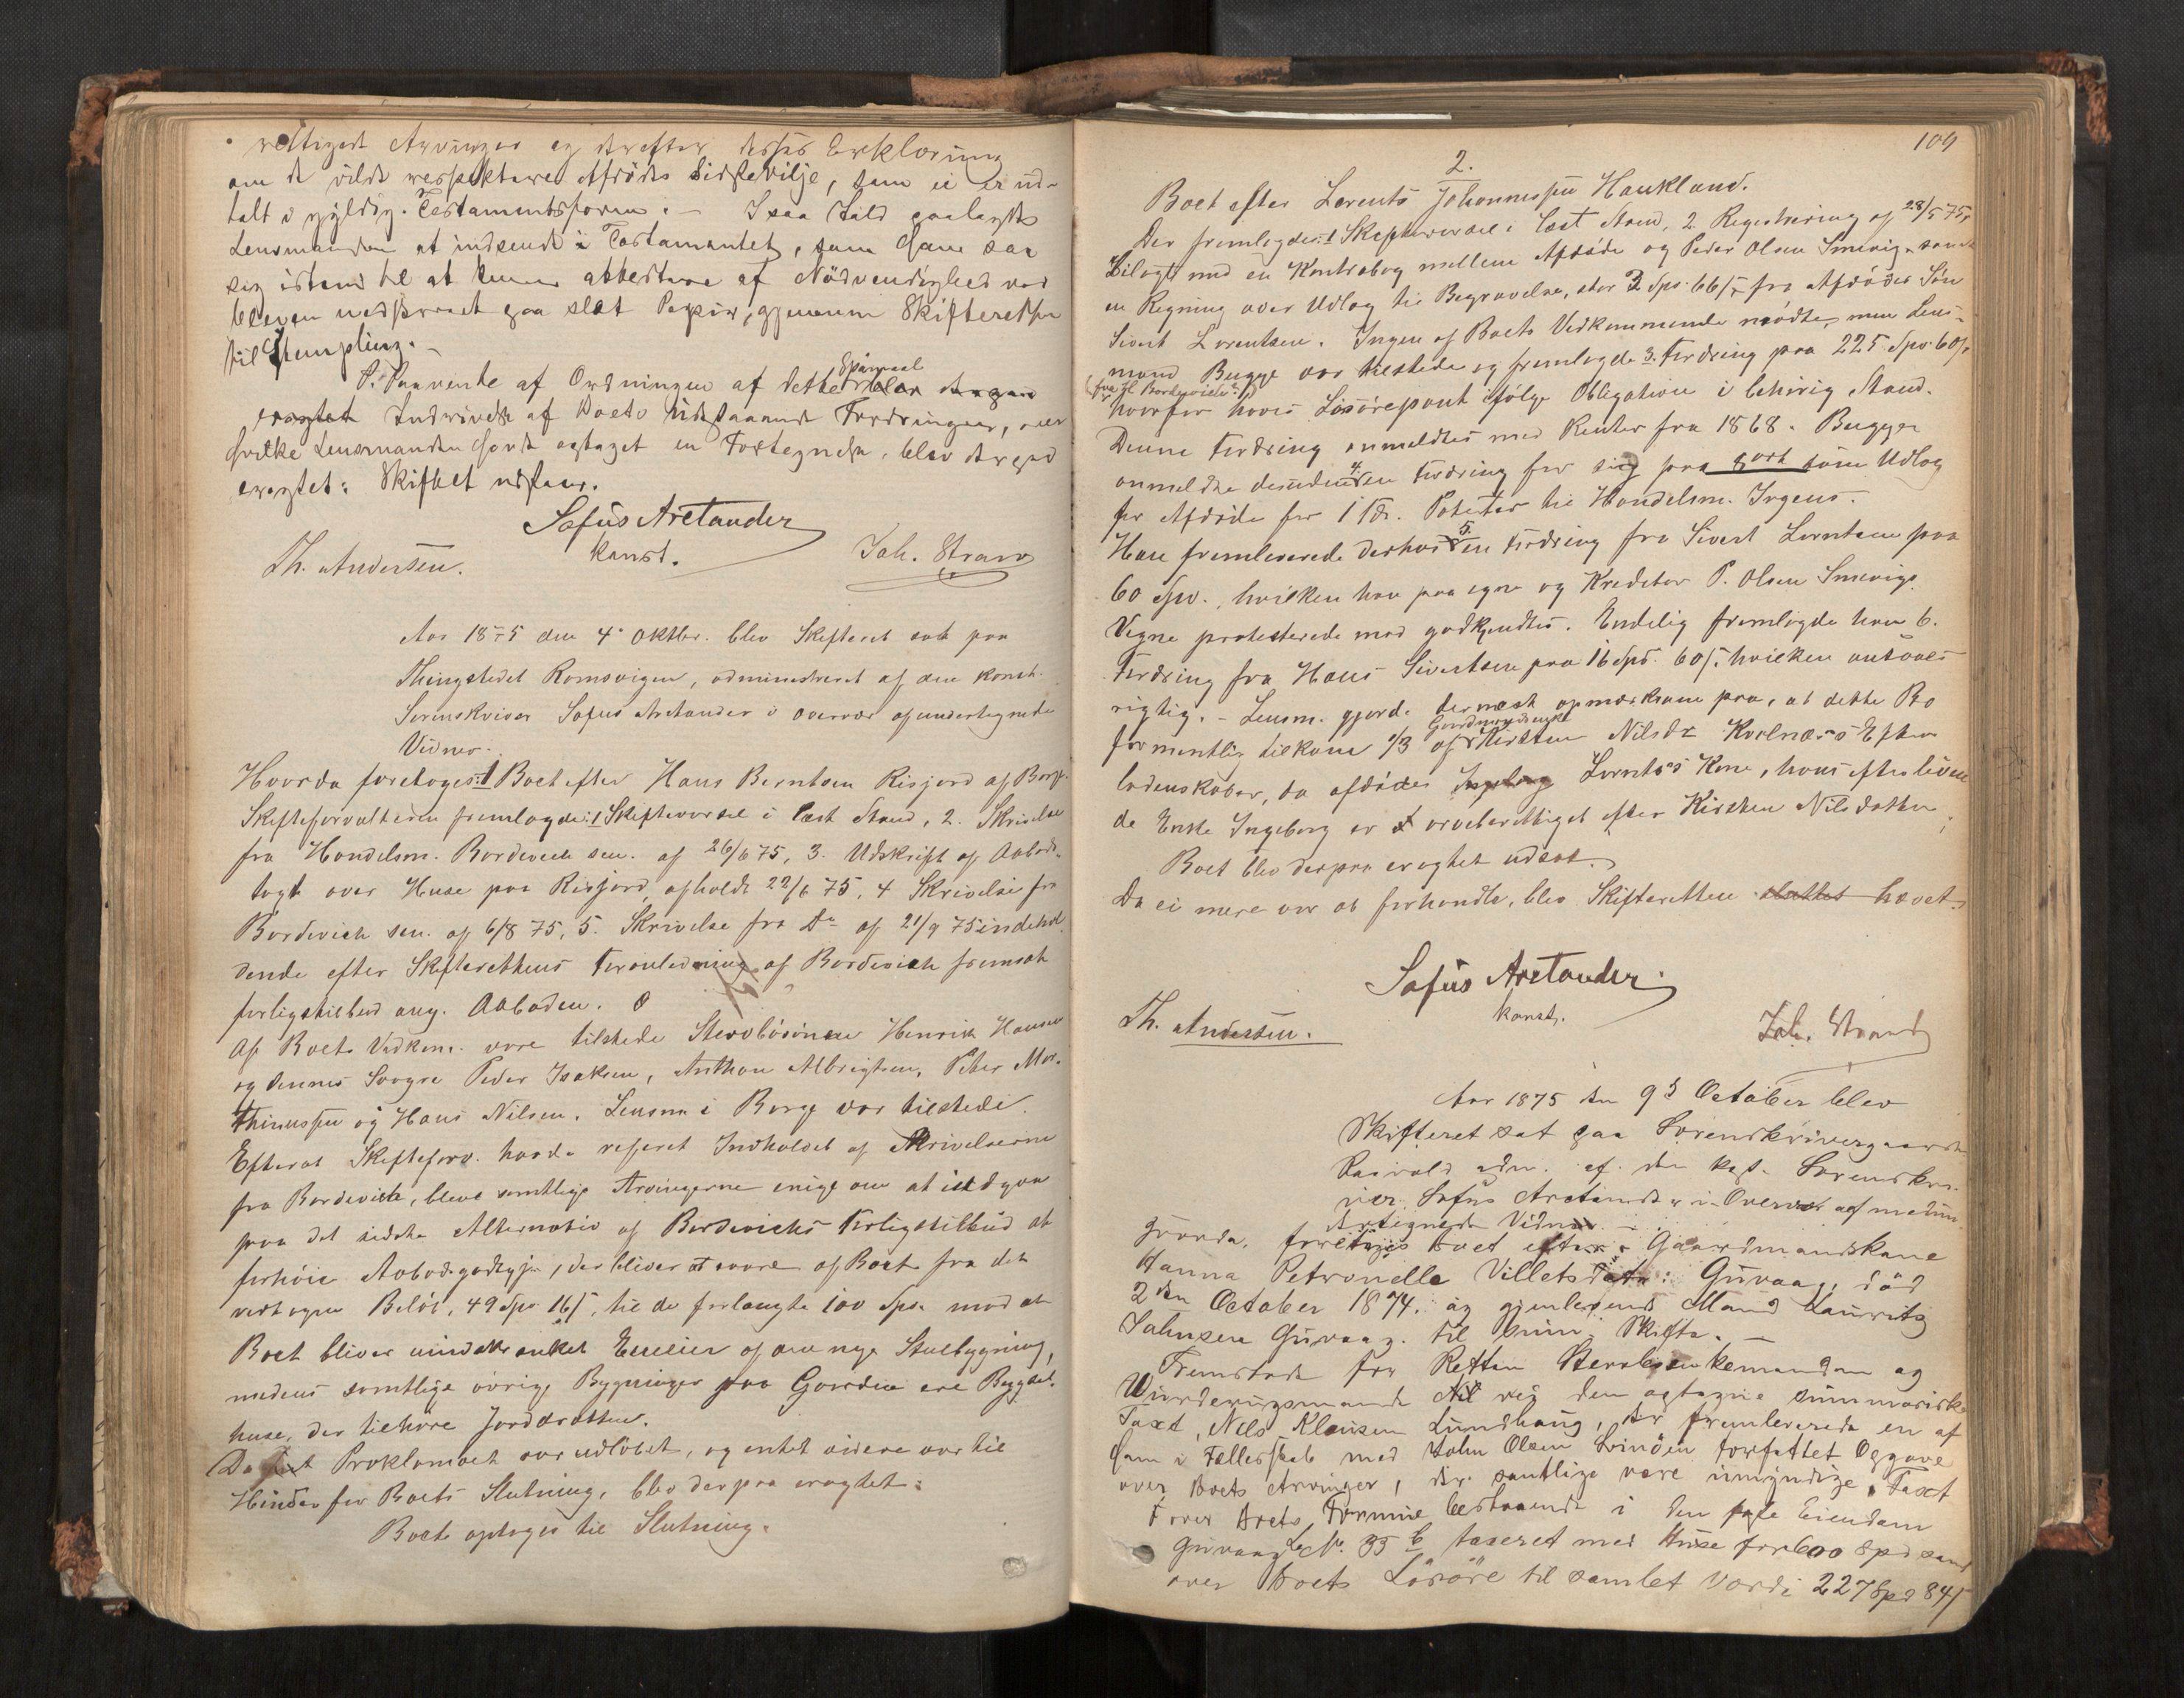 rettiget Arvinger og derefter disses Erklæring
om de vilde respektere Afdødes Sidstevilje, som ei er ud-
talt i gyldig Testamentsform. – I saa Fald paalagdes
Lensmanden at indsende i Testamentet, som han saa
sig istand til at kunne attestere af Nødvendighed var
bleven nedskrevet paa slet Papir, gjennem Skifteretten
til Stempling. –
P. Paavente af Ordningen af dette Spørsmaal
Inddrivelse af Boets udestaaende Fordringer, over
hvilke Lensmanden havde optaget en Fortegnelse, blev derpaa
eragtet: Skiftet udstaar.
Sofus Arctander
konst.
Th. Andersen.
Joh. Strand
Aar 1875 den 4. Oktbr. blev Skifteret sat paa
Thingstedet Ramsvigen, administreret af den konst.
Sorenskriver Sofus Arctander i Overvær af undertegnede
Vidner.
Hvorda foretoges: 1 Boet efter Hans Berntsen Risjord af Borge.
Skifteforvalteren fremlagde: 1 Skiftevarsel i læst Stand, 2. Skrivelse
fra Handelsm. Bordevich sen. af 26/6 75, 3. Udskrift af Aabods-
tagt over Huse paa Risjord, afholdt 22/6 75, 4 Skrivelse fra
Bordevich sen. af 6/8 75, 5. Skrivelse fra Do af 21/9 75 indehol-
dende efter Skifterettens Foranledning af Bordevich fremsat
forligstilbud ang. Aaboden.
Af Boets Vedkom. vare tilstede Stervbøsønnen Henrik Hansen
og dennes Svogre Peder Isaksen, Anthon Albrigtsen, Peter Mar-
thinussen og Hans Nilsen. Lensm i Borge var tilstede.
Efterat Skifteforv. havde refereret Indholdet af Skrivelserne
fra Bordevich, bleve samtlige Arvingerne enige om at indgaa
paa det sidste Alternativ af Bordevichs Forligstilbud at
forhøie Aabodsgodtgj., der bliver at svare af Boet fra det
vedtagne Beløb, 49 Spd 16 s, til de forlangte 100 Spd. mod at
Boet bliver uindskrænket Eneeier af den nye Stuebygning,
medens samtlige øvrige Bygninger paa Gaarden ere Bygsel-
huse, der tilhøre Jorddrotten.
Da Proklamaet var udløbet, og intet videre var til
Hinder for Boets Slutning, blev derpaa eragtet:
Boet optages til Slutning.
109
2.
Boet efter Lorents Johannessen Haukland.
Der fremlagdes: 1 Skiftevarsel i læst Stand, 2. Registrering af 28/5 75,
bilagt med en Kontrabog mellem Afdøde og Peder Olsen Smevig samt
en Regning over Udlæg til Begravelse, stor 3 Spd. 66 s, fra Afdødes Søn
Sivert Lorentsen. Ingen af Boets Vedkommende mødte, men Lens-
mand Bugge var tilstede og fremlagde 3. Fordring paa 225 Spd. 60 s,
fra H. Bordevich
hvorfor haves Løsørepant ifølge Obligation i behørig Stand.
Denne Fordring anmeldtes med Renter fra 1868. Bugge
anmeldte desuden 4. en Fordring for sig paa 8 ort som Udlæg
for Afdøde for 1 Td. Poteter til Handelsm. Irgens.
Han fremleverede derhos 5. en Fordring fra Sivert Lorntsen paa
60 Spd., hvilken han paa egne og Kreditor P. Olsen Smevigs
Vegne protesterede mod godkjendtes. Endelig fremlagde han 6.
Fordring fra Hans Sivertsen paa 16 Spd. 60 s, hvilken ansaaes
rigtig. – Lensm. gjorde dernæst opmærksom paa, at dette Bo
formentlig tilkom 1/3 af Gaardmandsenke Kirsten Nilsdr Kvelnæs's Efter-
ladenskaber, da afdødes Lornts's Kone, hans efterleven-
de Enke Ingeborg er arveberettiget efter Kirsten Nilsdatter;
Boet blev derpaa eragtet udsat.
Da ei mere var at forhandle, blev Skifteretten sluttet hævet.
Sofus Arctander
konst.
Th. Andersen.
Joh. Strand
Aar 1875 den 9d October blev
Skifteret sat paa Sorenskrivergaarden
adm. af den kst. Sorenskri-
ver Sofus Arctander i Overvær af medun-
dertegnede Vidner. –
Hvorda, foretoges Boet efter Gaardmandskone
Hanna Petronelle Villetsdatr: Guvaag, død
2den October 1874. og gjenlevende Mand Lauritz
Johnsen Guvaag. til Skifte. –
Fremstod for Retten Stervbøenkemanden og
Vurderingsmand ved den optagne summariske
Taxt, Nels Klausen Lundhaug, der fremleverede en af
ham i Fællesskab med John Olsen forfattet Opgave
over Boets Arvinger, der samtlige vare umyndige, Taxt
over Boets Formue bestaaende i den faste Eiendom
Guvaag L. No. 35 b taxeret med Huse for 600 Spd samt
over Boets Løsøre til samlet Værdi 227 Spd 84 s